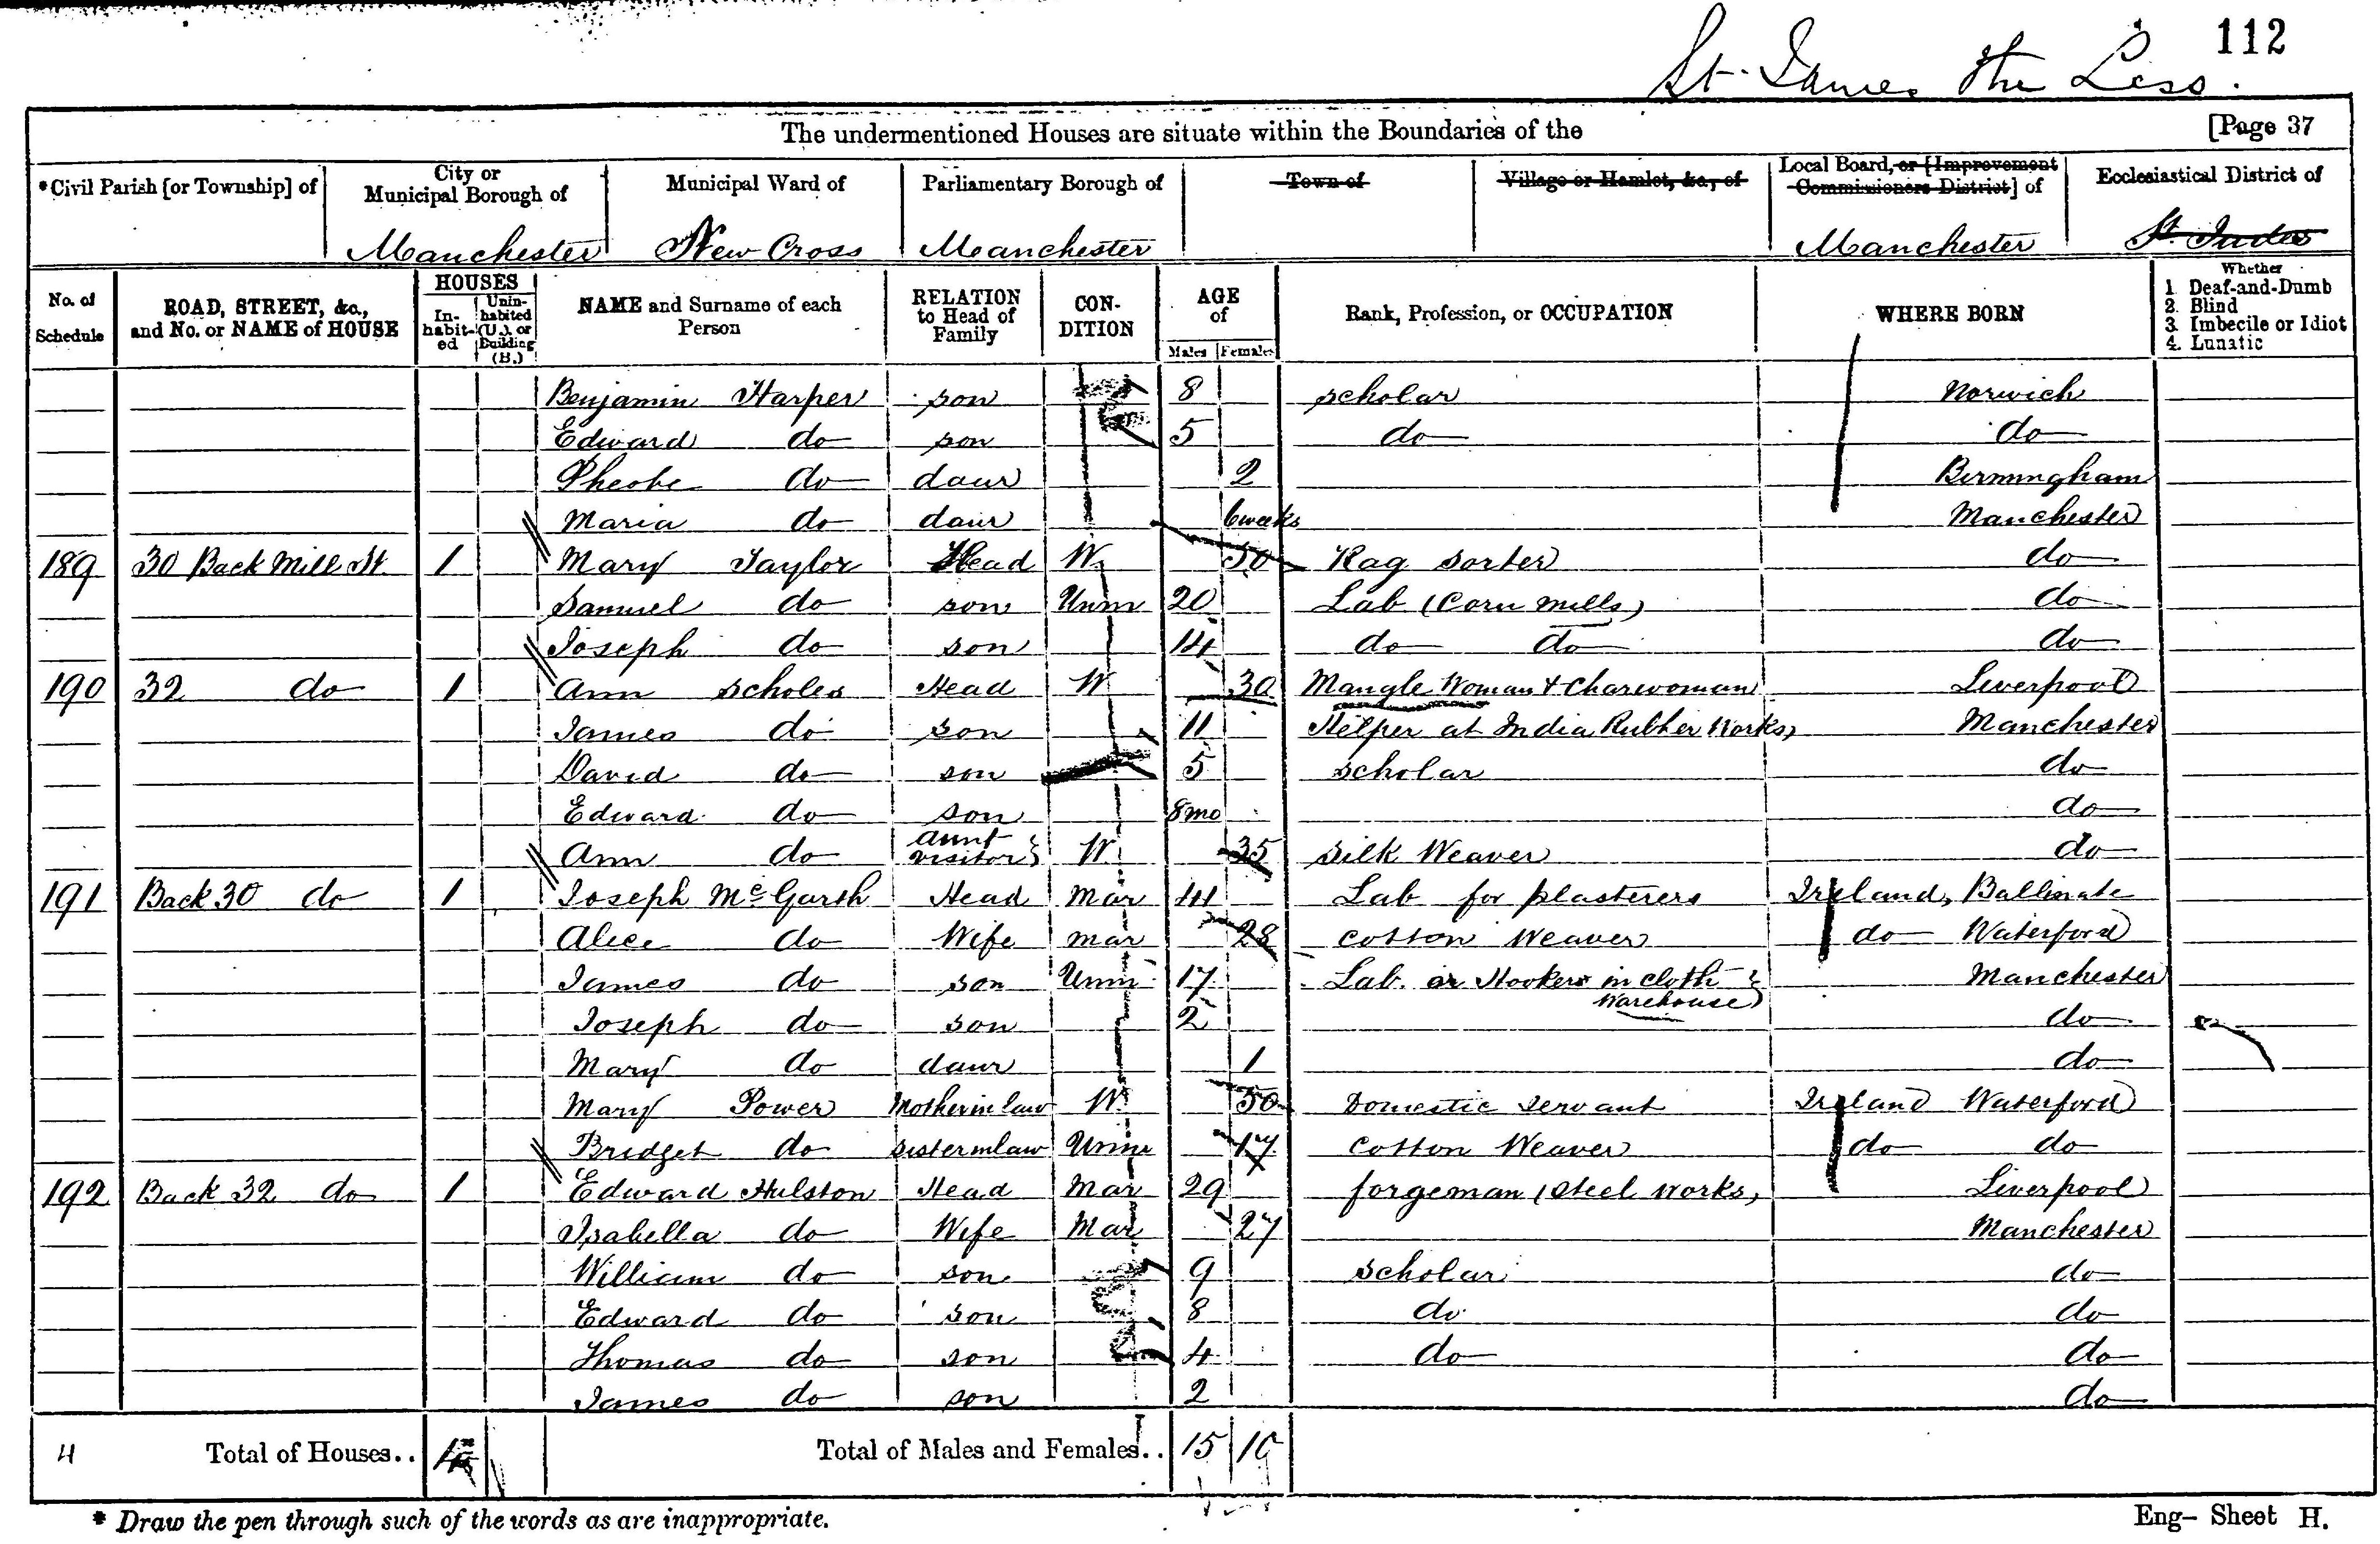 112
St. James the Less.
The undermentioned Houses are situate within the Boundaries of the [Page 37
*Civil Parish [or Township] of
City or Municipal Borough of
Municipal Ward of
Parliamentary Borough of
Town of
Village or Hamlet, &c., of
Local Board, or [Improvement Commissioners District] of
Ecclesiastical District of
Manchester New Cross Manchester Manchester St. Judes
No. of Schedule
ROAD, STREET, &c., and No. or NAME of HOUSE
HOUSES
Inhabited
Uninhabited (U.), or Building (B.)
NAME and Surname of each Person
RELATION to Head of Family
CONDITION
AGE of
Males Females
Rank, Profession, or OCCUPATION
WHERE BORN
Whether
1. Deaf-and-Dumb
2. Blind
3. Imbecile or Idiot
4. Lunatic
Benjamin Harper son 8 scholar Norwich
Edward do son 5 do do
Pheobe do daur 2 Birmingham
Maria do daur 6 weeks Manchester
189 30 Back Mill St. 1 Mary Taylor Head W. 50 Rag sorter do
Samuel do son Unm 20 Lab (Corn mills) do
Joseph do son 14 do do do
190 32 do 1 Ann Scholes Head W 30 Mangle Woman & Charwoman Liverpool
James do son 11 Helper at India Rubber Works, Manchester
David do son 5 scholar do
Edward do son 8 mo do
Ann do aunt visitor W 35 Silk Weaver do
191 Back 30 do 1 Joseph McGarth Head Mar 41 Lab for plasterers Ireland, Ballinate
Alice do Wife mar 28 cotton Weaver do Waterford
James do son Unm 17 Lab. or Hooker in cloth Warehouse Manchester
Joseph do son 2 do
Mary do daur 1 do
Mary Power Mother in law W. 50 Domestic servant Ireland Waterford
Bridget do sister in law Unm 17 cotton Weaver do do
192 Back 32 do 1 Edward Hulston Head Mar 29 forgeman (steel works, Liverpool
Isabella do Wife Mar 27 Manchester
William do son 9 scholar do
Edward do son 8 do do
Thomas do son 4 do do
James do son 2 do
4 Total of Houses.. 4 Total of Males and Females.. 15 10
* Draw the pen through such of the words as are inappropriate.
Eng— Sheet H.